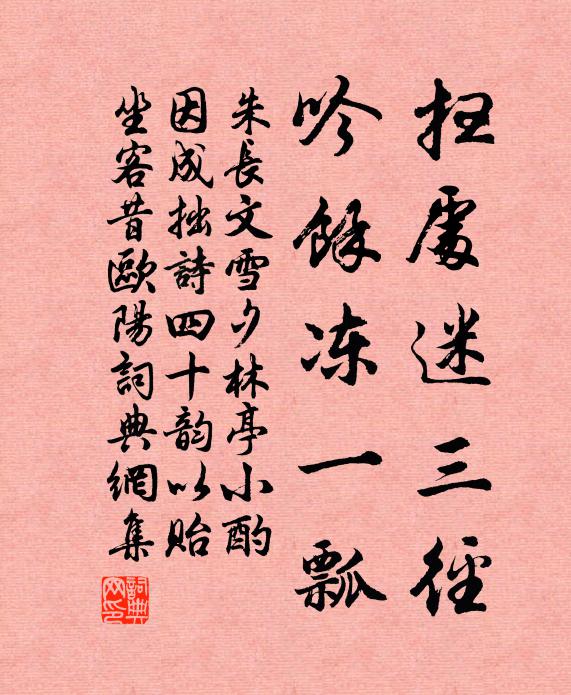 扫處迷三径
吟餘冻一瓢
朱長文雪夕林亭小酌
因成拙詩四十韵以貽
坐客昔歐陽詞典網集
詞典
网印